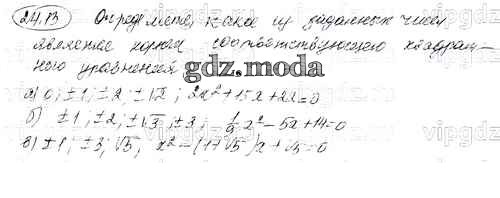 24.13 Определите, какое из заданных чисел
является корнем соответствующего квадрат-
ного уравнения
gdz.moda
а) 0; ±1; ±2; ±√2; 2x² + 15x + 22 = 0
б) ±1; ±2; ±√3; ±3; 1/9 x² - 5x + 14 = 0
в) ±1; ±3; √5; x² - (1+√5)x + √5 = 0
vipgdz
vipgdz
vipgdz